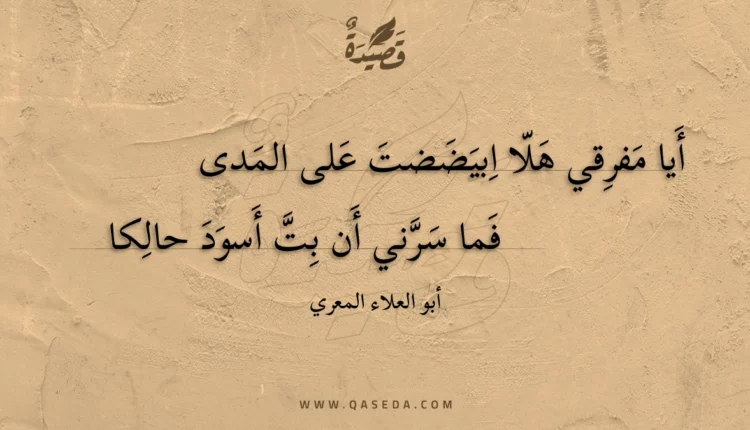 قَصِيْدَةٌ
أَيا مَفرِقي هَلّا اِبيَضَضتَ عَلى المَدى
فَما سَرَّني أَن بِتَّ أَسوَدَ حالِكا
أبو العلاء المعري
WWW.QASEDA.COM